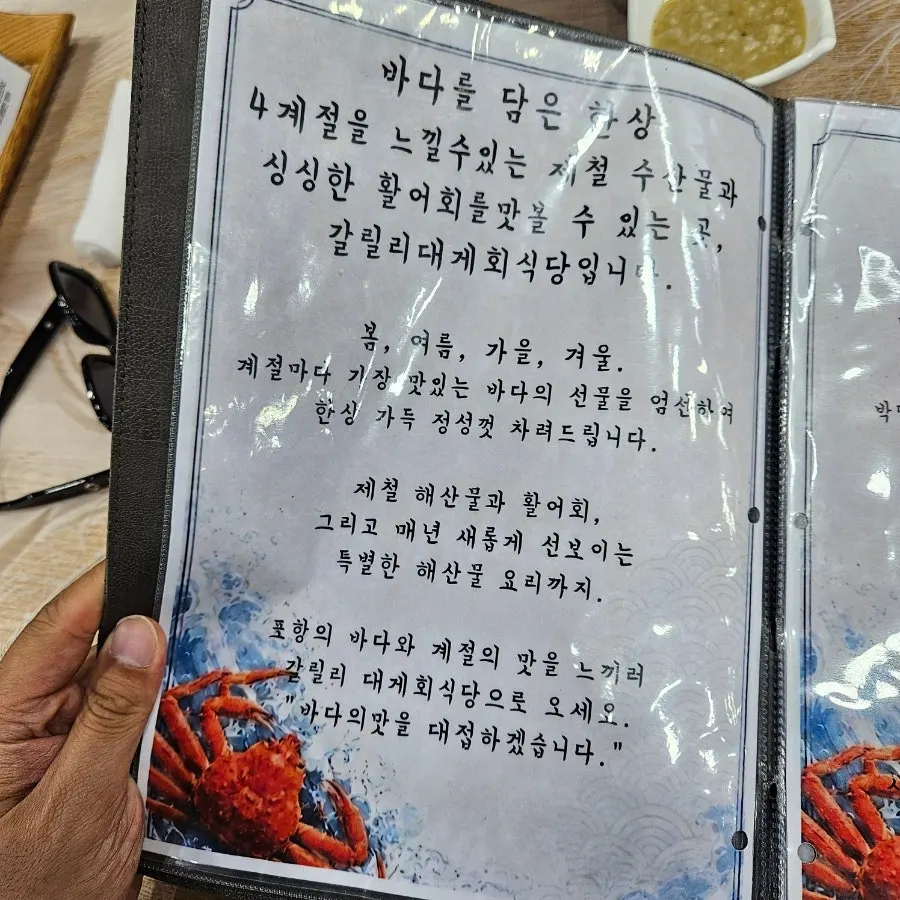 바다를 담은 한상
4계절을 느낄수있는 제철 수산물과
싱싱한 활어회를맛볼 수 있는 곳,
갈릴리대게회식당입니다.
봄, 여름, 가을, 겨울.
계절마다 가장 맛있는 바다의 선물을 엄선하여
한상 가득 정성껏 차려드립니다.
제철 해산물과 활어회,
그리고 매년 새롭게 선보이는
특별한 해산물 요리까지.
포항의 바다와 계절의 맛을 느끼러
갈릴리 대게회식당으로 오세요.
"바다의맛을 대접하겠습니다."